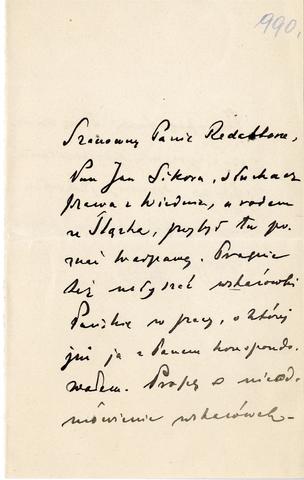 990.
Szanowny Panie Redaktorze,
Pan Jan Sikora, słuchacz
prawa z Wiednia, a rodem
ze Śląska, przybył tu po-
znać Warszawę. Pragnie
też usłyszeć wskazówki
Pańskie w pracy, o której
już ja z Panem korespondo-
wałem. Proszę o nieod-
mówienie wskazówek.